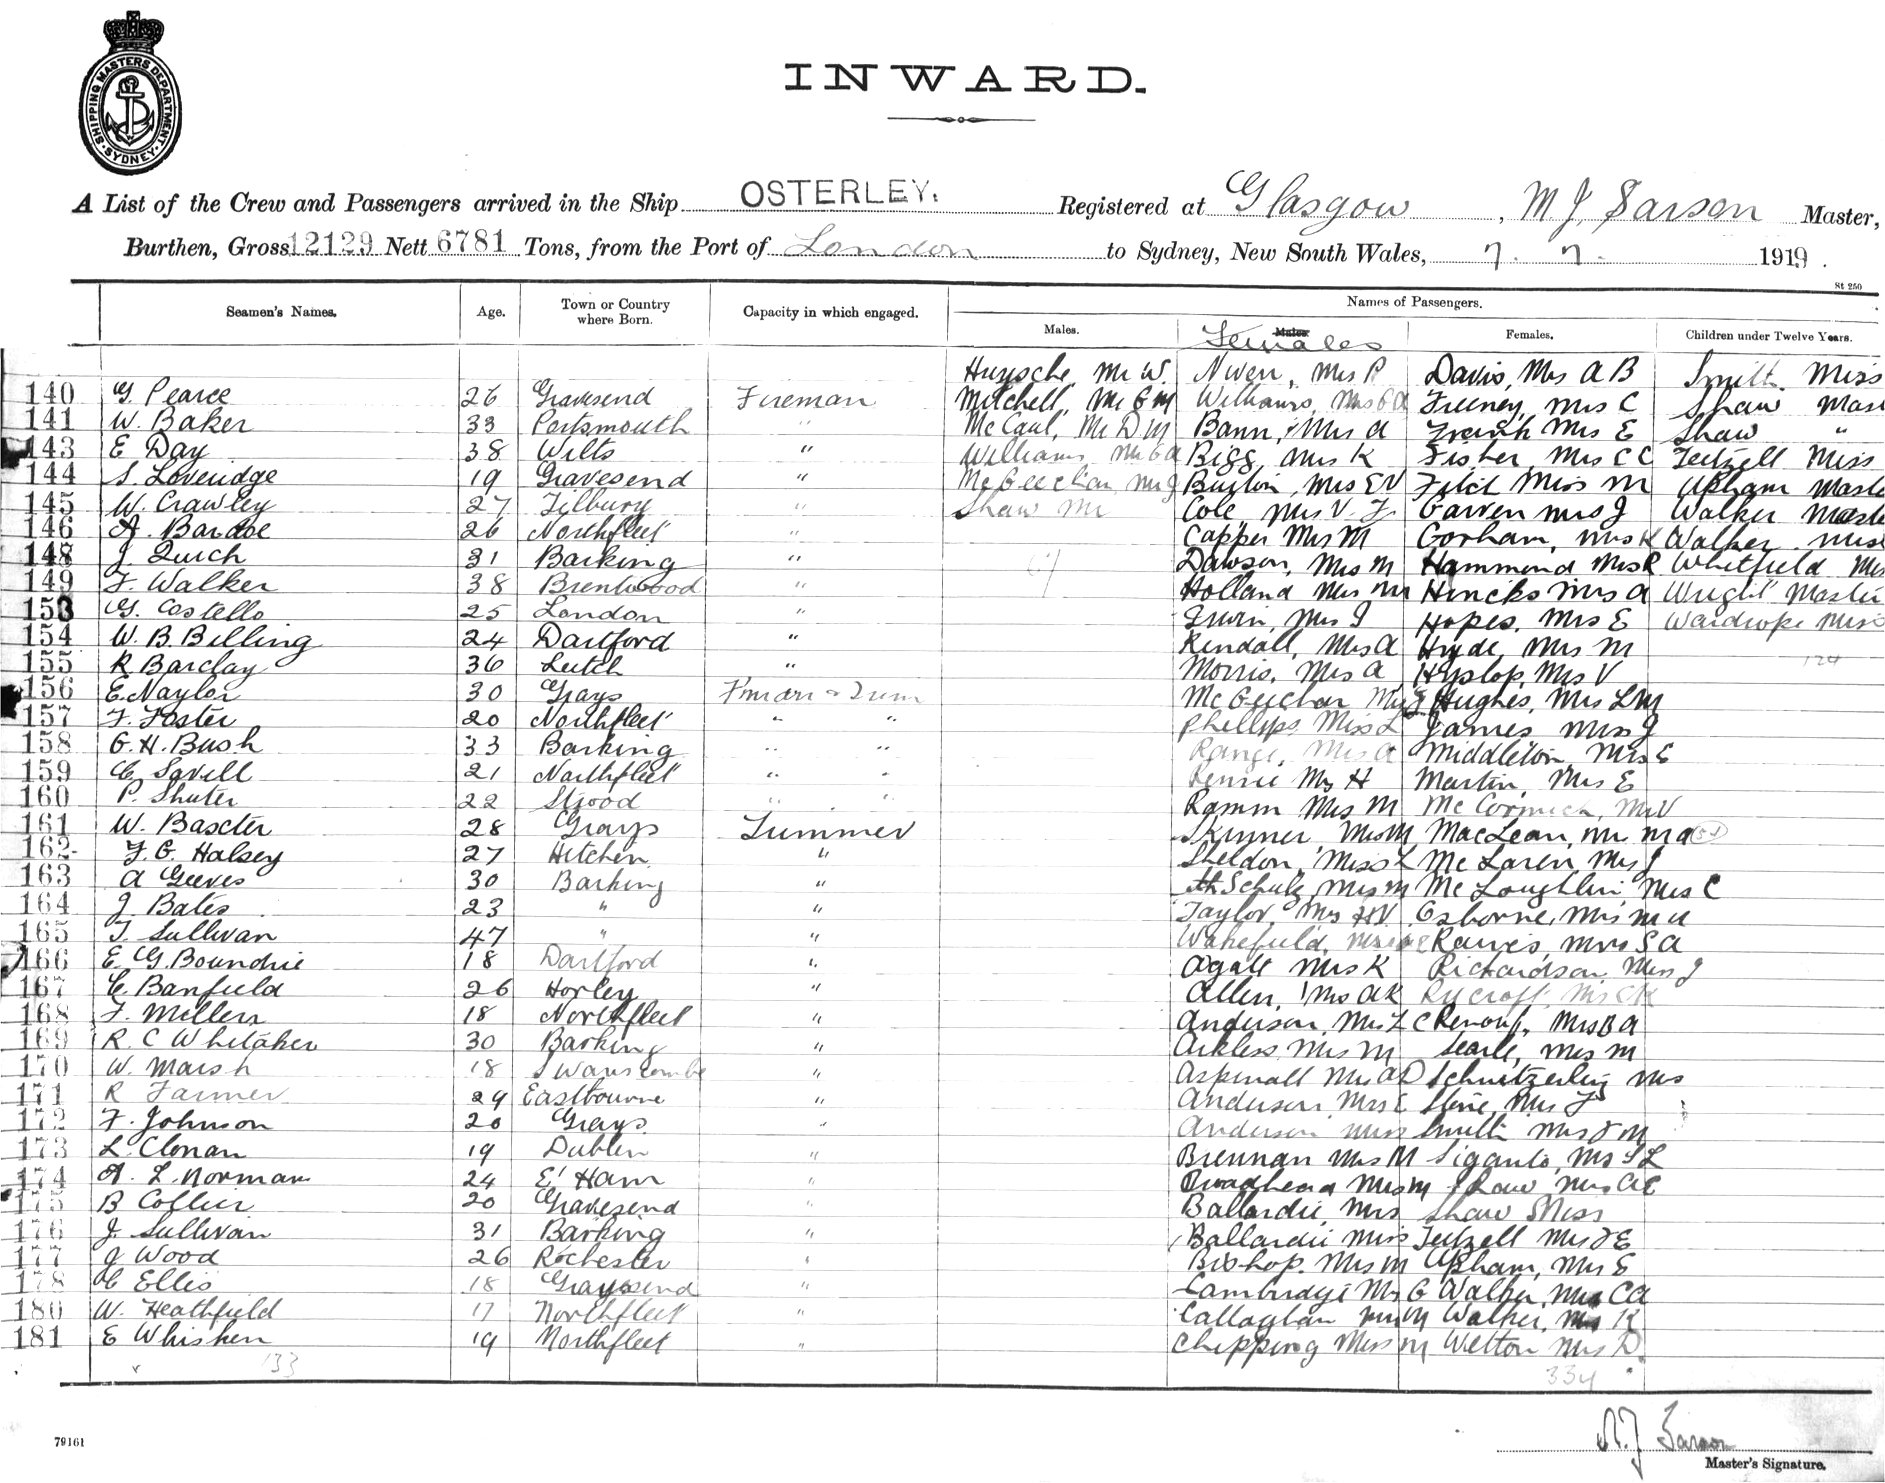 SHIPPING MASTERS DEPARTMENT. SYDNEY.
INWARD.
A List of the Crew and Passengers arrived in the Ship OSTERLEY. Registered at Glasgow, M J Sarson Master,
Burthen, Gross 12129 Nett 6781 Tons, from the Port of London to Sydney, New South Wales, 7. 7. 1919.
St 250
Seamen's Names. Age. Town or Country where Born. Capacity in which engaged. Names of Passengers.
Males. Males. Females Females. Children under Twelve Years.
Huysche, Mr W. Niven, Mrs P Davis, Mrs A B Smith Miss
140 G Pearce 26 Gravesend Fireman Mitchell, Mr G M Williams, Mrs G A Feeney, Mrs C Shaw Mast
141 W. Baker 33 Portsmouth " McCaul, Mr D M Bann, Mrs A Frank Mrs E Shaw "
143 E Day 38 Wilts " Williams Mr G A Bigg Mrs K Fisher, Mrs C C Teitzell Miss
144 S. Loveridge 19 Gravesend " McGeechan Mr J Burton, Mrs E V Fitch Miss M Apham Maste
145 W. Crawley 27 Tilbury " Shaw Mr Cole Mrs V. F. Garven Mrs J Walker Maste
146 A. Bardoe 26 Northfleet " Capper Mrs M Gorham, Mrs K Walker Miss
148 J. Quich 31 Barking " Dawson, Mrs M Hammond Mrs R Whitfield Mis
149 F. Walker 38 Brentwood " Holland Mrs M Hincks Mrs A Wright Maste
153 G. Costello 25 London " Irwin, Mrs J Hopes, Mrs E Wardrope Miss
154 W. B. Billing 24 Dartford " Kendall, Mrs A Hyde, Mrs M
155 R Barclay 36 Leith " Morris, Mrs A Hyslop, Mrs V 124
156 E. Naylor 30 Grays F'man & Trim McGeechan Mrs J Hughes, Mrs L M
157 F. Foster 20 Northfleet " " Phillips Miss L James Miss J
158 G. H. Bush 33 Barking " " Range, Mrs A Middleton, Mrs E
159 C Savell 21 Northfleet " " Rennie Mrs H Martin, Mrs E
160 P. Shuter 22 Strood " " Ramm Mrs M McCormick, Mrs V
161 W. Baxter 28 Grays Trimmer Skinner, Mrs M MacLean, Mr M A
162 F. G. Halsey 27 Hitchin " Sheldon, Miss L McLaren Mrs J
163 A Geeves 30 Barking " Schulz, Mrs M McLoughlin, Mrs C
164 J. Bates 23 " " Taylor, Mrs H V Osborne, Mrs M A
165 T. Sullivan 47 " " Wakefield, Mrs Raives, Mrs S A
166 E. G. Boundrie 18 Dartford " Agate Mrs K Richardson Miss J
167 C. Banfield 26 Horley " Allen, Mrs A K Rycroft, Mrs C K
168 F. Millen 18 Northfleet " Anderson, Mrs L C Renouf, Mrs B A
169 R. C Whitaker 30 Barking " Arkless, Mrs M Searle, Mrs M
170 W. Marsh 18 Swanscombe " Aspinall Mrs A D Schnitzerling Mrs
171 R Farmer 29 Eastbourne " Anderson, Mrs E Stene, Mrs F
172 F. Johnson 20 Grays " Anderson Miss Smith Mrs J M
173 L. Clonan 19 Dublin " Brennan Mrs M Siganto, Mrs S L
174 A. L. Norman 24 E' Ham " Broadhead Mrs M Shaw Mrs A E
175 B Collier 20 Gravesend " Ballardie, Mrs Shaw Miss
176 J. Sullivan 31 Barking " Ballardie Miss Teitzell Mrs J E
177 J Wood 26 Rochester " Bishop. Mrs M Apham, Mrs E
178 C Ellis 18 Gravesend " Cambridge Mrs G Walker, Mrs C A
180 W. Heathfield 17 Northfleet " Callaghan Mrs M Walker, Mrs K
181 E Whisken 19 Northfleet " Chipping Miss M Welton Mrs D.
133 334
M. J Sarson
79161 Master's Signature.